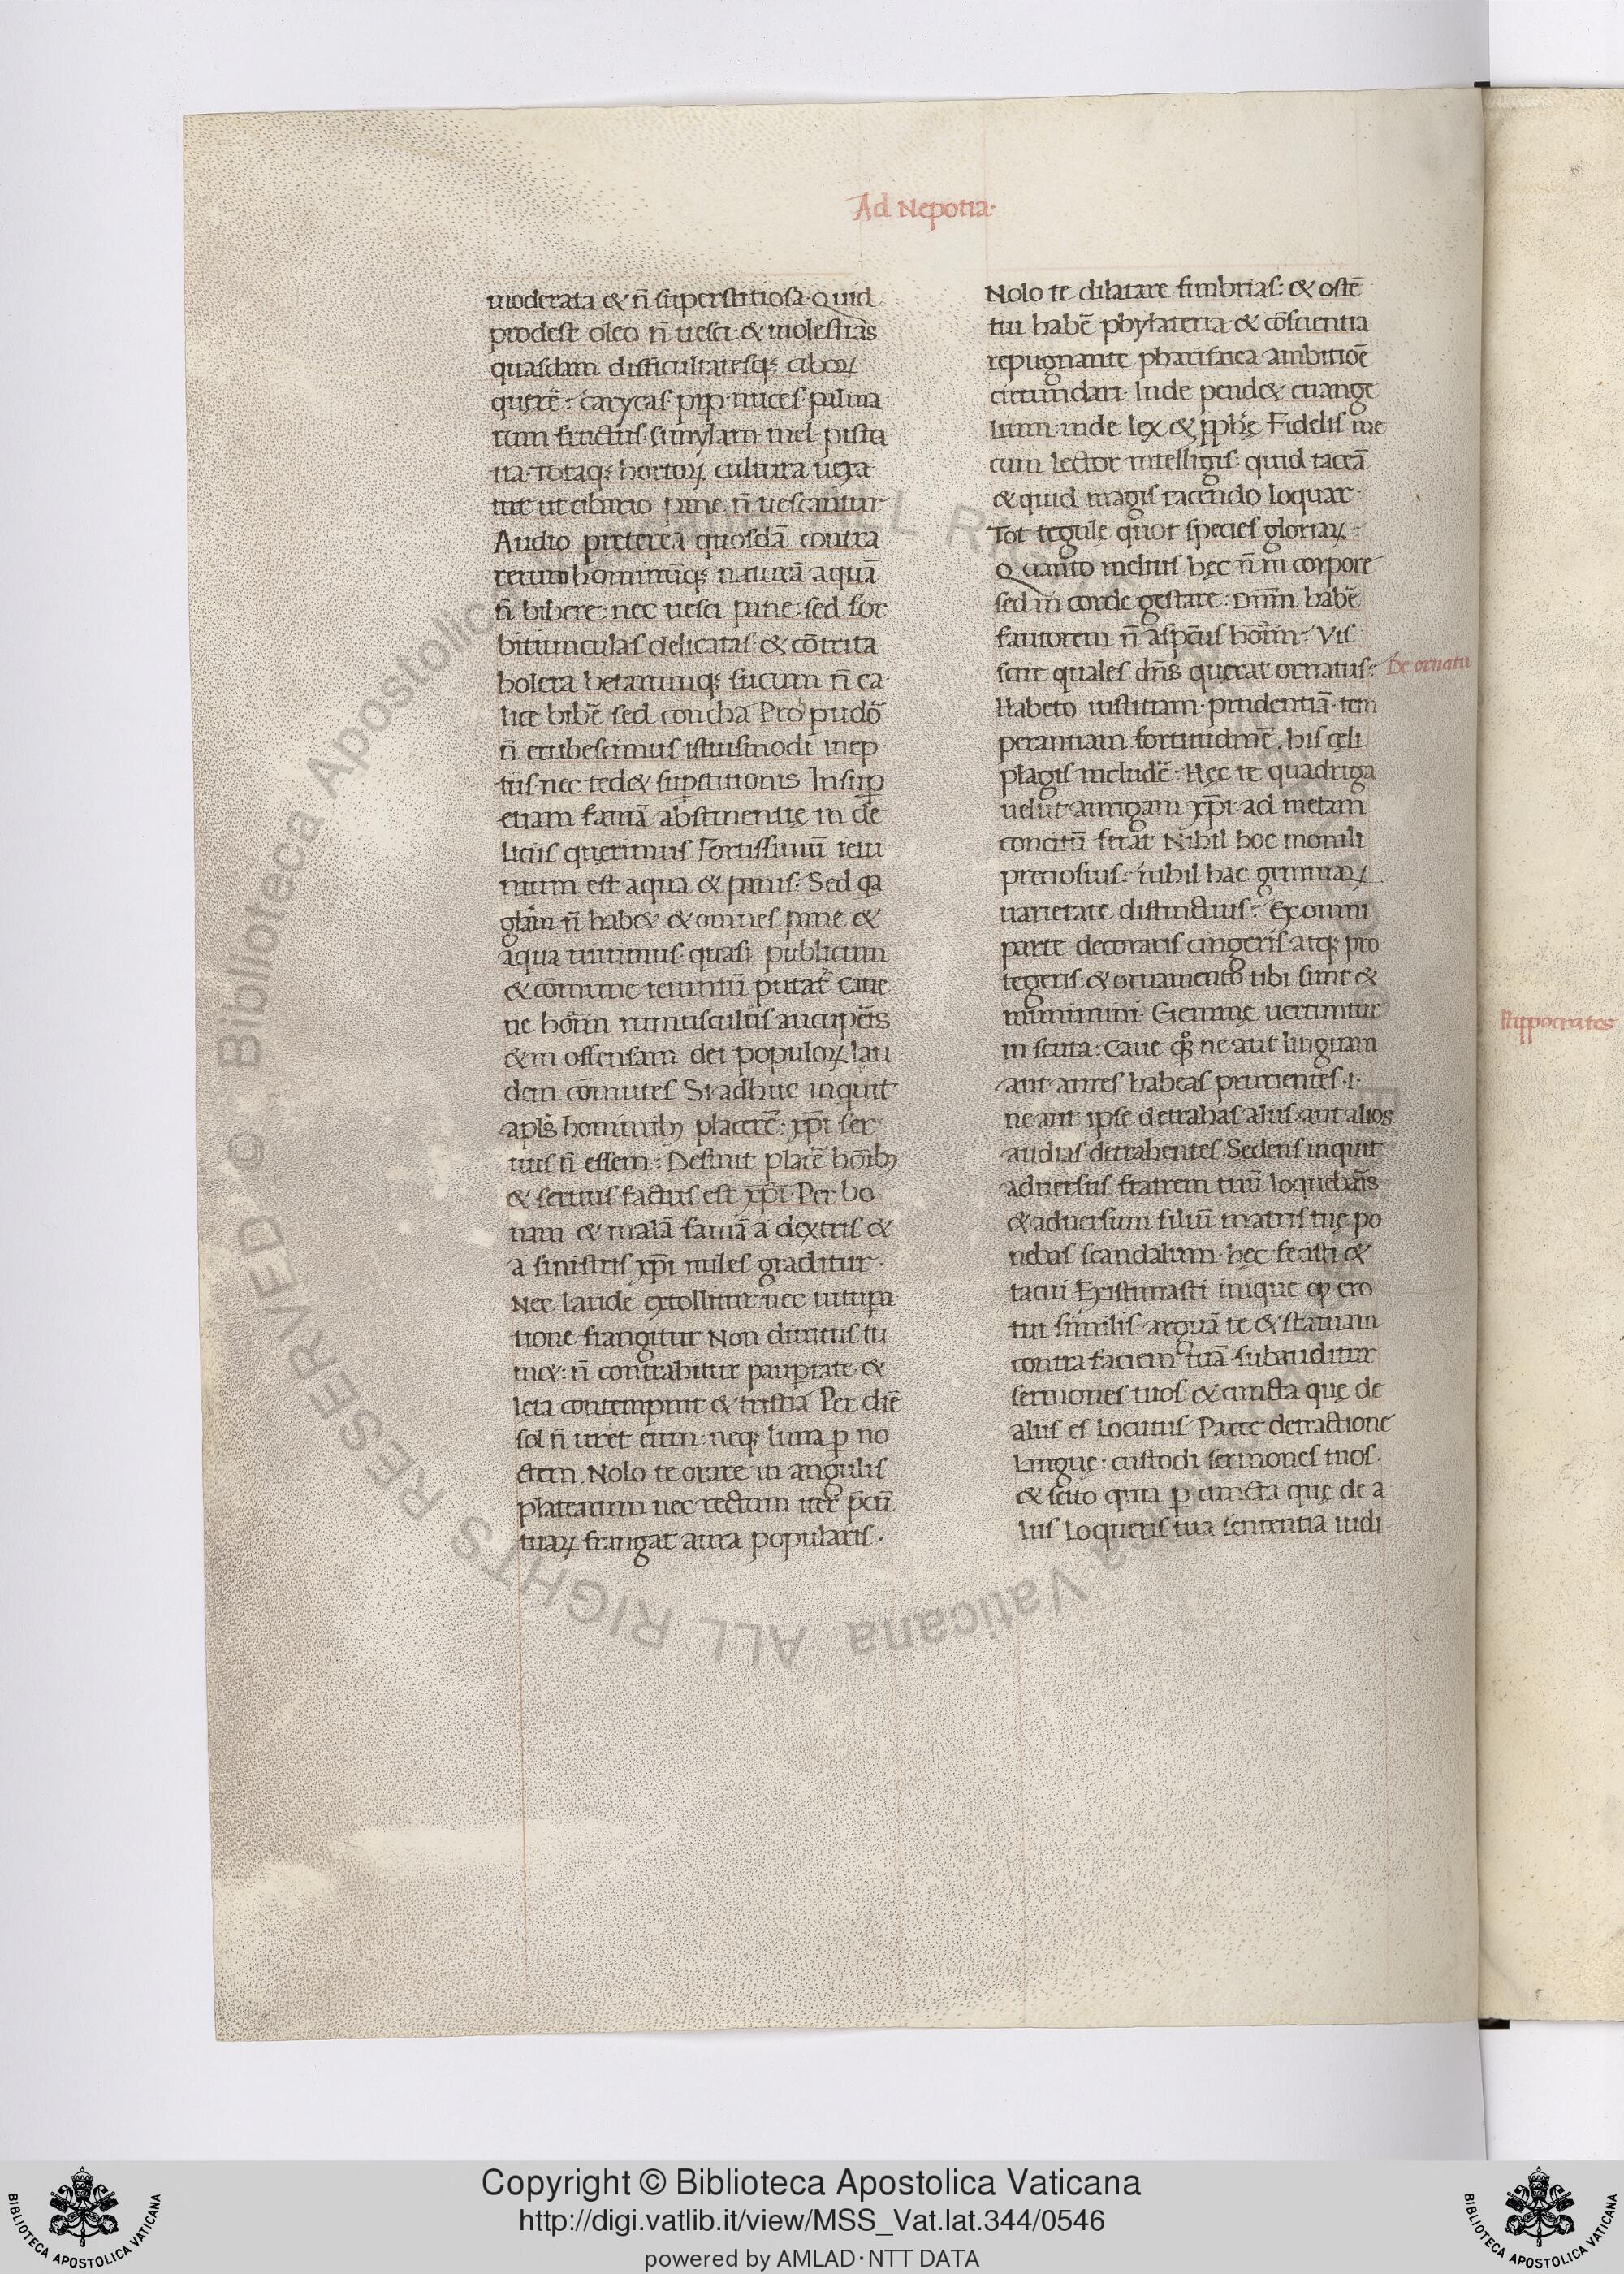 Ad Nepotia·
moderata & n̄ superstitiosa· Quid
prodest oleo n̄ uesci· & molestias
quasdam difficultatesq; ciboꝝ
querē: carycas pip nuces palma
rum fructus· simylam mel pista
tia· Totaq; hortoꝝ cultura uexa
tur ut cibario pane n̄ uescantur
Audio preterea quosdā contra
rerum hominūq; naturā aquā
n̄ bibere· nec uesci pane· sed sor
bitiunculas delicatas· & cōtrita
holera betarumq; sucum n̄ ca
lice bibē sed concha· Pro pudō
n̄ erubescimus istiusmodi inep
tiis· nec ted& suꝑstitionis Insuꝑ
etiam famā abstinentię in de
liciis querimus Fortissimū ieiu
nium est aqua & panis: Sed qa
glām n̄ hab& & omnes pane &
aqua uiuimus· quasi publicum
& cōmune ieiuniū putat᷑ Caue
ne hoīm rumusculos aucuperis
& in offensam dei populoꝝ lau
dem cōmutes Si adhuc inquit
apls hominib; placerē: xp̄i ser
uus n̄ essem: Desinit placē hoīb;
& seruus factus est xp̄i· Per bo
nam & malā famā a dextris &
a sinistris xp̄i miles graditur·
Nec laude extollitur· nec uitupa
tione frangitur Non diuitiis tu
m&: n̄ contrahitur pauꝑtate· &
leta contempnit & tristia Per diē
sol n̄ uret eum· neq; luna ꝑ no
ctem· Nolo te orare in angulis
platearum nec rectum iter p̄cū
tuaꝝ frangat aura popularis·
Nolo te dilatare fimbrias: & ostē
tui habē phylateria & cōscientia
repugnante pharisaica ambitiōe
circumdari· Inde pend& euange
lium· inde lex & pphę Fidelis me
cum lector intelligis· quid taceā
& quid magis tacendo loquar·
Tot regule quot species gloriaꝝ:
Quanto melius hęc n̄ in corpore
sed in corde gestare· Dnm̄ habē
fautorem n̄ aspctus hoīm: Vis
scire quales dn̄s querat ornatus:
De ornatu
Habeto iustitiam· prudentiā· tem
perantiam· fortitudinē· his cęli
plagis includē: Hęc te quadriga
uelut aurigam xp̄i· ad metam
concitū ferat Nihil hoc monili
preciosius: nihil hac gemmaꝝ
uarietate distinctius: Ex omni
parte decoraris cingeris atq; pro
tegeris· & ornamento tibi sunt &
munimini· Gemmę uertuntur
in scuta: Caue qs̊ ne aut linguam
aut aures habeas prurientes·i·
ne aut ipse detrahas aliis· aut alios
audias detrahentes· Sedens inquit
aduersus fratrem tuū loquebaris
& aduersum filiū matris tuę po
nebas scandalum· hęc fecisti &
tacui Existimasti inique qp ero
tui similis· arguā te & statuam
contra faciem tuā· subauditur
sermones tuos: & cuncta quę de
aliis es locutus Parce detractione
linguę: custodi sermones tuos·
& scito quia ꝑ cuncta quę de a
liis loqueris tua sententia iudi
Hyppocrates
© Biblioteca Apostolica Vaticana ALL RIGHTS RESERVED
Copyright © Biblioteca Apostolica Vaticana
http://digi.vatlib.it/view/MSS_Vat.lat.344/0546
powered by AMLAD·NTT DATA
BIBLIOTECA APOSTOLICA VATICANA
BIBLIOTECA APOSTOLICA VATICANA